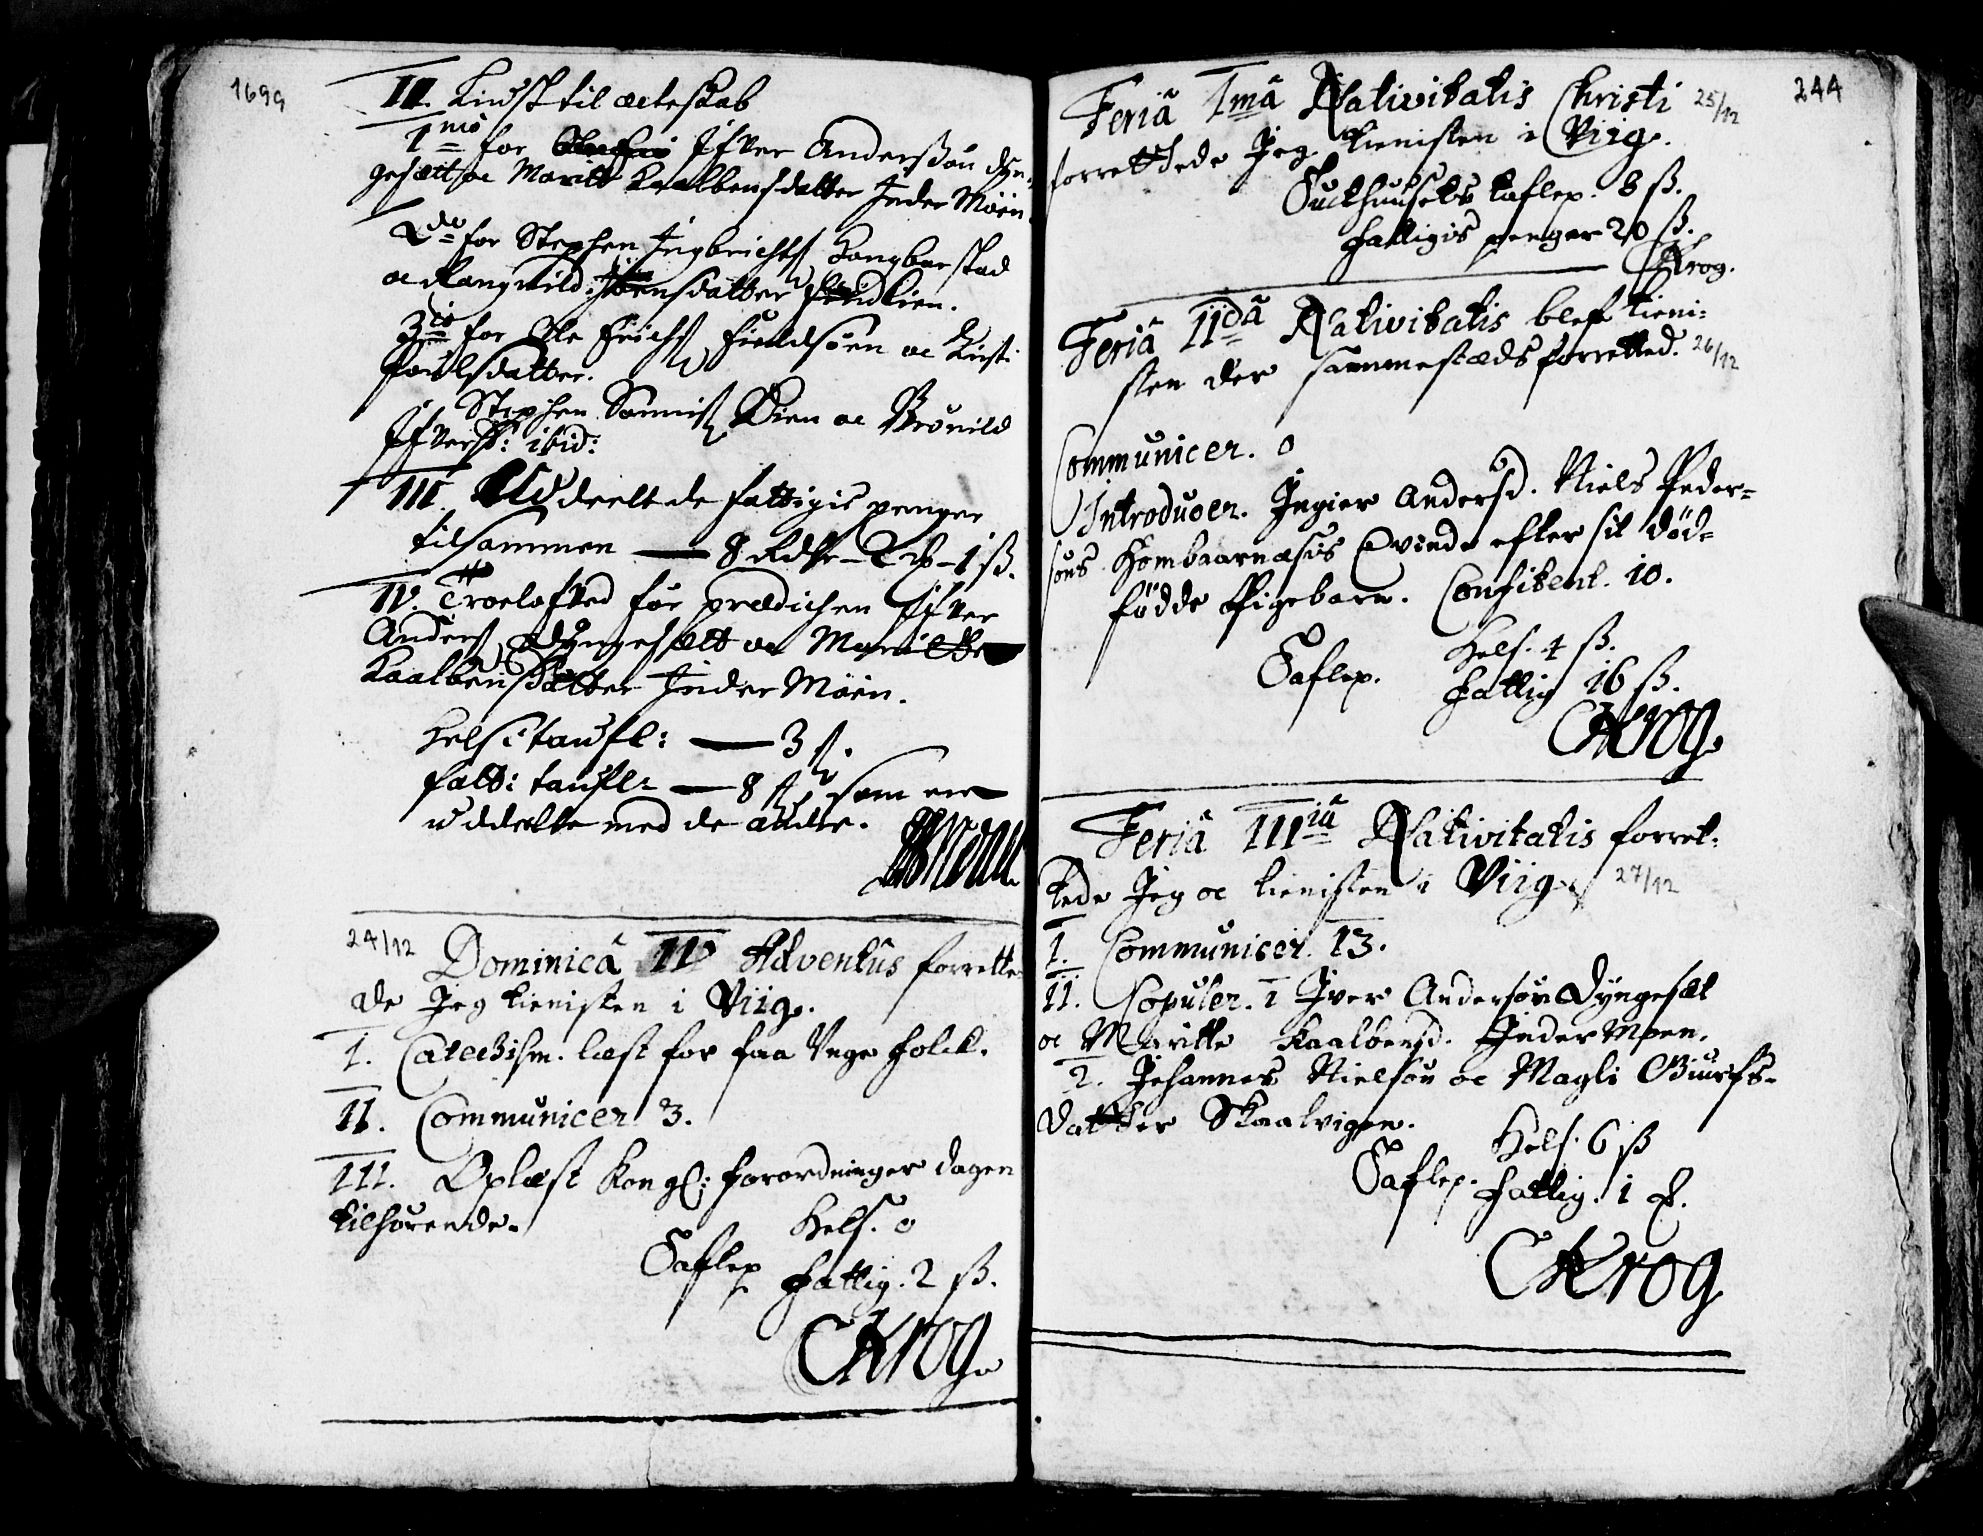 1699
II. Liust til ecteskab
1mo for Ifver Andersøn dyn-
gesætt oc Maritt Kaalbensdatter Inder Möen
2do for Stephen Ingbrichts Kongbarstad
oc Rangnild Joensdatter
3io for Ole Erichs Fieldsöen oc Kirsti
Poulsdatter.
Stephen Öien oc Brönild
Ifvers: ibid:
III. Uddeelt de fattigis penger
tilsammen — 8 Rdlr – 2 – 1 ß.
IV. Troelofved för prædichen Ifver
Anders dyngesætt oc Maritte
Kaalbensdatter Inder Möen.
Kels: taufl: — 3 ß.
fatt: taufl: — 8 ß som er
uddeelte med de andre.
24/12 Dominicâ IV Adventûs forrette-
de Jeg tienisten i Viig.
I. Catechism. læst for faa Unge folck.
II. Communicer 3.
III. Oplæst Kongl: forordninger dagen
tilhörende.
Kels. 0
Taflep. fattig. 2 ß.
CKrog.
244
Feriâ Imâ Nativitatis Christi 25/12
forrettede Jeg tienisten i Viig.
Tuckhuusets taflep. 8 ß.
Fattigis penger 20 ß.
CKrog.
Feriâ IIdâ Nativitatis blef tieni-
sten der sammestæds forretted. 26/12
Communicer. 0
Introducer. Ingier Andersd. Niels Peder-
søns Hombaarnæsis Qvinde efter sit död-
födde Pigebarn. Confitent. 10.
Kels. 4 ß.
Taflep. fattig 16 ß.
CKrog.
Feriâ IIItiâ Nativitatis forret-
tede Jeg oc tienisten i Viig. 27/12
I. Communicer. 13.
II. Copuler. 1 Iver Andersøn Dyngesæt
oc Maritte Kaalbensd. Inder Moen.
2. Johannes Nielsøn oc Magli Siurfs-
datter Skaalvigen.
Kels. 6 ß
Taflep. fattig. 1
CKrog